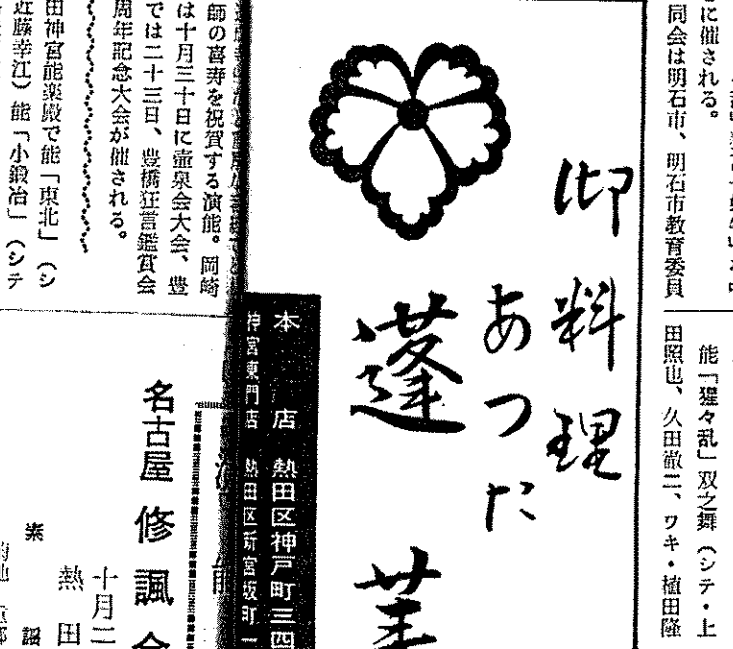 に催される。
同会は明石市、明石市教育委員
能「猩々乱」双之舞（シテ・上
田照也、久田徹二、ワキ・植田隆
御料理
あつた
蓬莱
本店 熱田区神戸町三四
神宮東門店 熱田区新宮坂町一
師の喜寿を祝賀する演能。岡崎
は十月三十日に壷泉会大会、豊
では二十三日、豊橋狂言鑑賞会
周年記念大会が催される。
田神宮能楽殿で能「東北」（シ
近藤幸江）能「小鍛冶」（シテ
名古屋修諷会
十月二
熱田
素謡